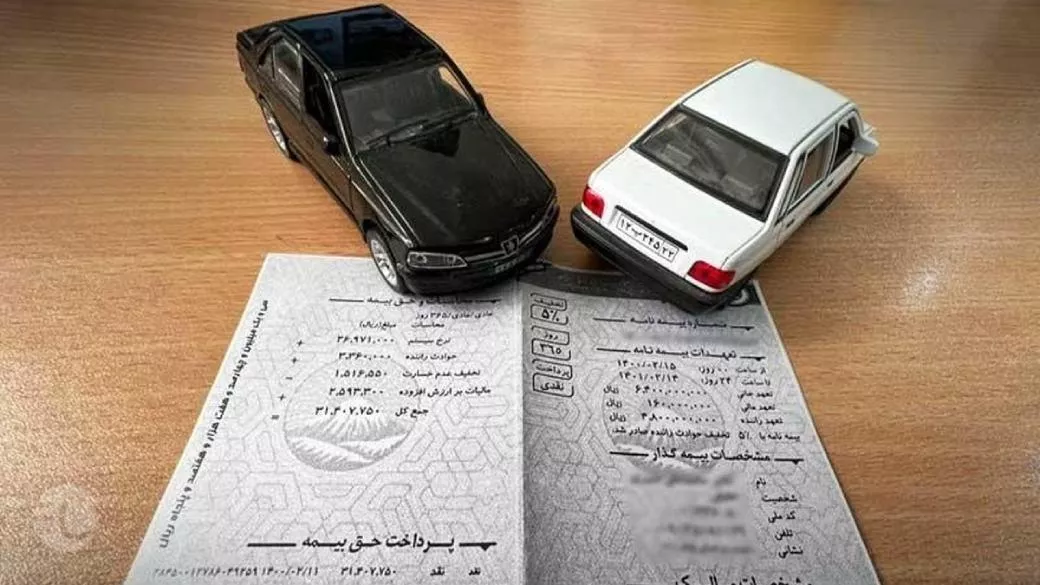 شماره بیمه نامه
تعهدات بیمه نامه
از ساعت ۰۰ روز: ۱۴۰۰/۰۲/۱۵
تا ساعت ۲۴ روز: ۱۴۰۱/۰۲/۱۴
تعهد جانی ۶,۴۰۰,۰۰۰,۰۰۰ ریال
تعهد مالی ۱۶۰,۰۰۰,۰۰۰ ریال
تعهد راننده ۴,۸۰۰,۰۰۰,۰۰۰ ریال
بیمه نامه با ۵% تخفیف حوادث راننده صادر شد.
مشخصات بیمه گذار
نام
شخصیت
کد ملی
تلفن
نشانی
تخفیف
۵%
روز
۳۶۵
پرداخت
نقدی
محاسبات و حق بیمه
عادی/عادی/۳۶۵ روز
محاسبات مبلغ(ریال)
نرخ سیستم ۲۶,۹۷۱,۰۰۰
حوادث راننده ۳,۳۶۰,۰۰۰ +
تخفیف عدم خسارت ۱,۵۱۶,۵۵۰ -
مالیات بر ارزش افزوده ۲,۵۹۳,۳۰۰ +
جمع کل ۳۱,۴۰۷,۷۵۰ =
سی و یک میلیون و چهارصد و هفت هزار و هفتصد و پنجاه ریال
پرداخت حق بیمه
نقد نقد ۳۱,۴۰۷,۷۵۰ ۱۴۰۰/۰۲/۱۱